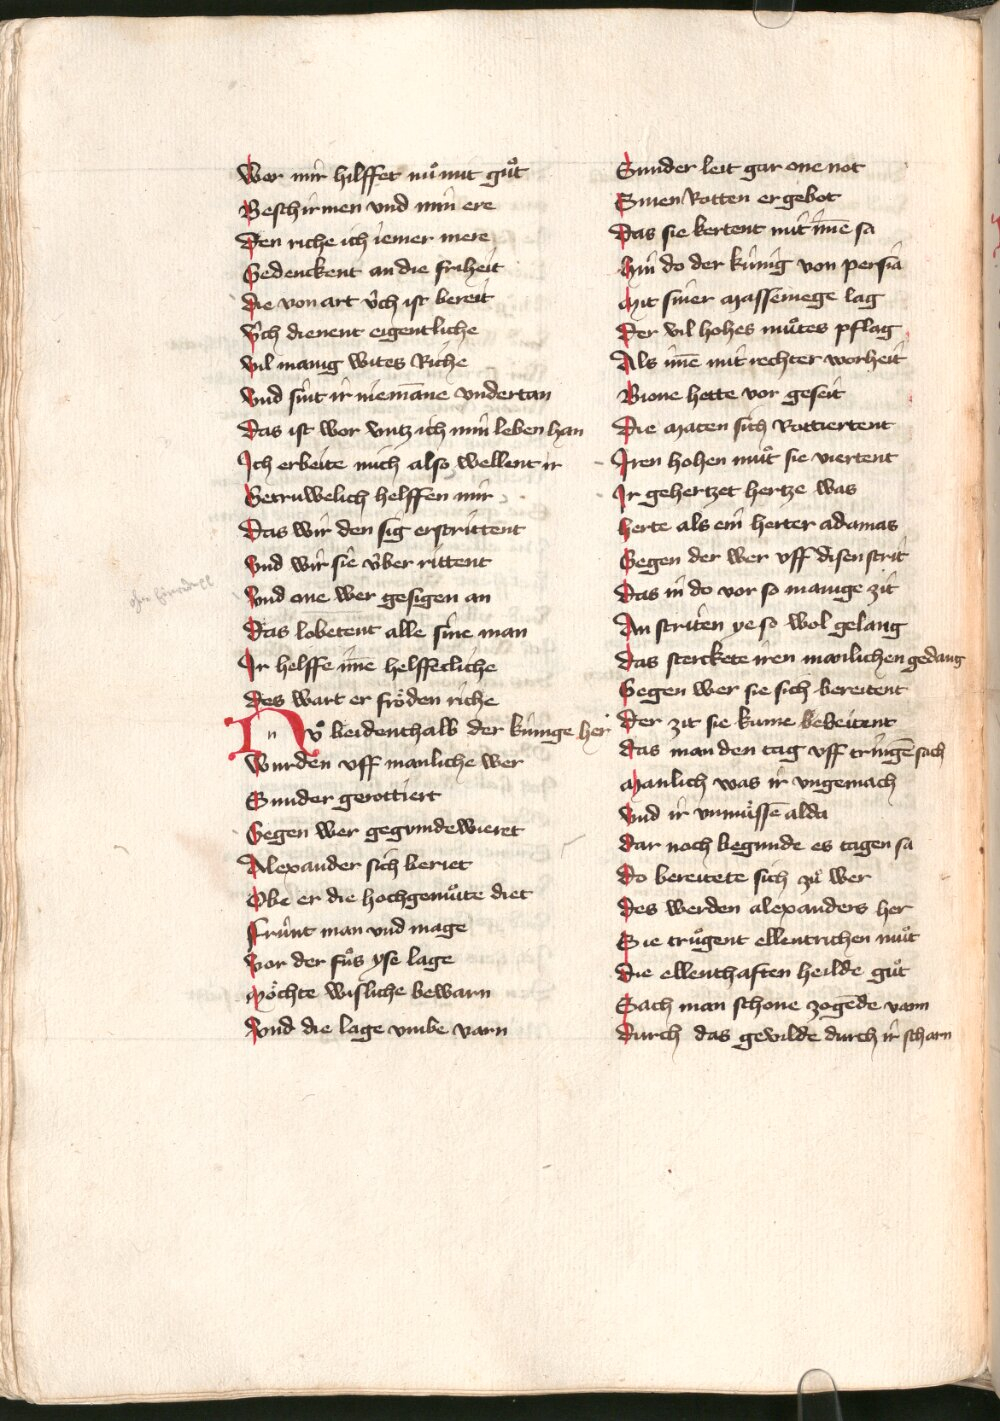 Wer mir hilffet nuͦ mit guͦt
Beschirmen vnd min ere
Den riche ich iemer mere
Gedenckent an die friheit
Die von art v́ch ist bereit
V́ch dienent eigentliche
Vil manig wites Riche
Vnd sint ir niemāne vndertan
Das ist wor vntz ich min leben han
Ich erbeite mich also wellent ir
Getruwelich helffen mir
Das wir den sig erstrittent
Vnd wir sie v́ber rittent
Vnd one wer gesigen an
Das lobetent alle sine man
Ir helffe im̄e helffecliche
Des wart er froͤden riche
Nvͦ beidenthalb der kúnige her
Wurden vff manliche wer
Sunder gerottiert
Gegen wer gegundewieret
Alexander sich beriet
Obe er die hochgemuͦte diet
Frúnt man vnd mage
Vor der fuͦs yse lage
Moͤchte wisliche bewarn
Vnd die lage vmbe varn
Sunder leit gar one not
Sinen Rotten er gebot
Das sie kertent mit im̄e sa
Hin do der kúnig von persia
Mit siner masseniege lag
Der vil hohes muͦtes pflag
Als im̄e mit rechter worheit
Bione hette vor geseit
Die Maten sich Rottiertent
Iren hohen muͦt sie viertent
Ir gehertzet hertze was
Herte als ein herter adamas
Gegen der wer vff disen strit
Das in do vor so manige zit
An striten ye so wol gelang
Das sterckete iren manlichen gedang
Gegen wer sie sich bereitent
Der zit sie kume bebeitent
Das man den tag vff tringē sach
Manlich was ir vngemach
Vnd ir vnmuͤssē alda
Dar noch begunde es tagen sa
Do bereitete sich zuͦ wer
Des werden alexanders her
Sie truͦgent ellentrichen muͦt
Die ellenthaften heilde guͦt
Sach man schone zogēde varn
Durch das gewilde durch ir scharn